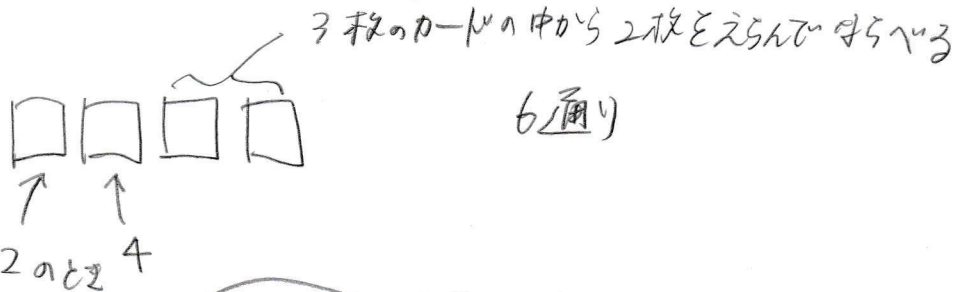 3枚のカードの中から2枚をえらんでならべる
6通り
2のとき 4